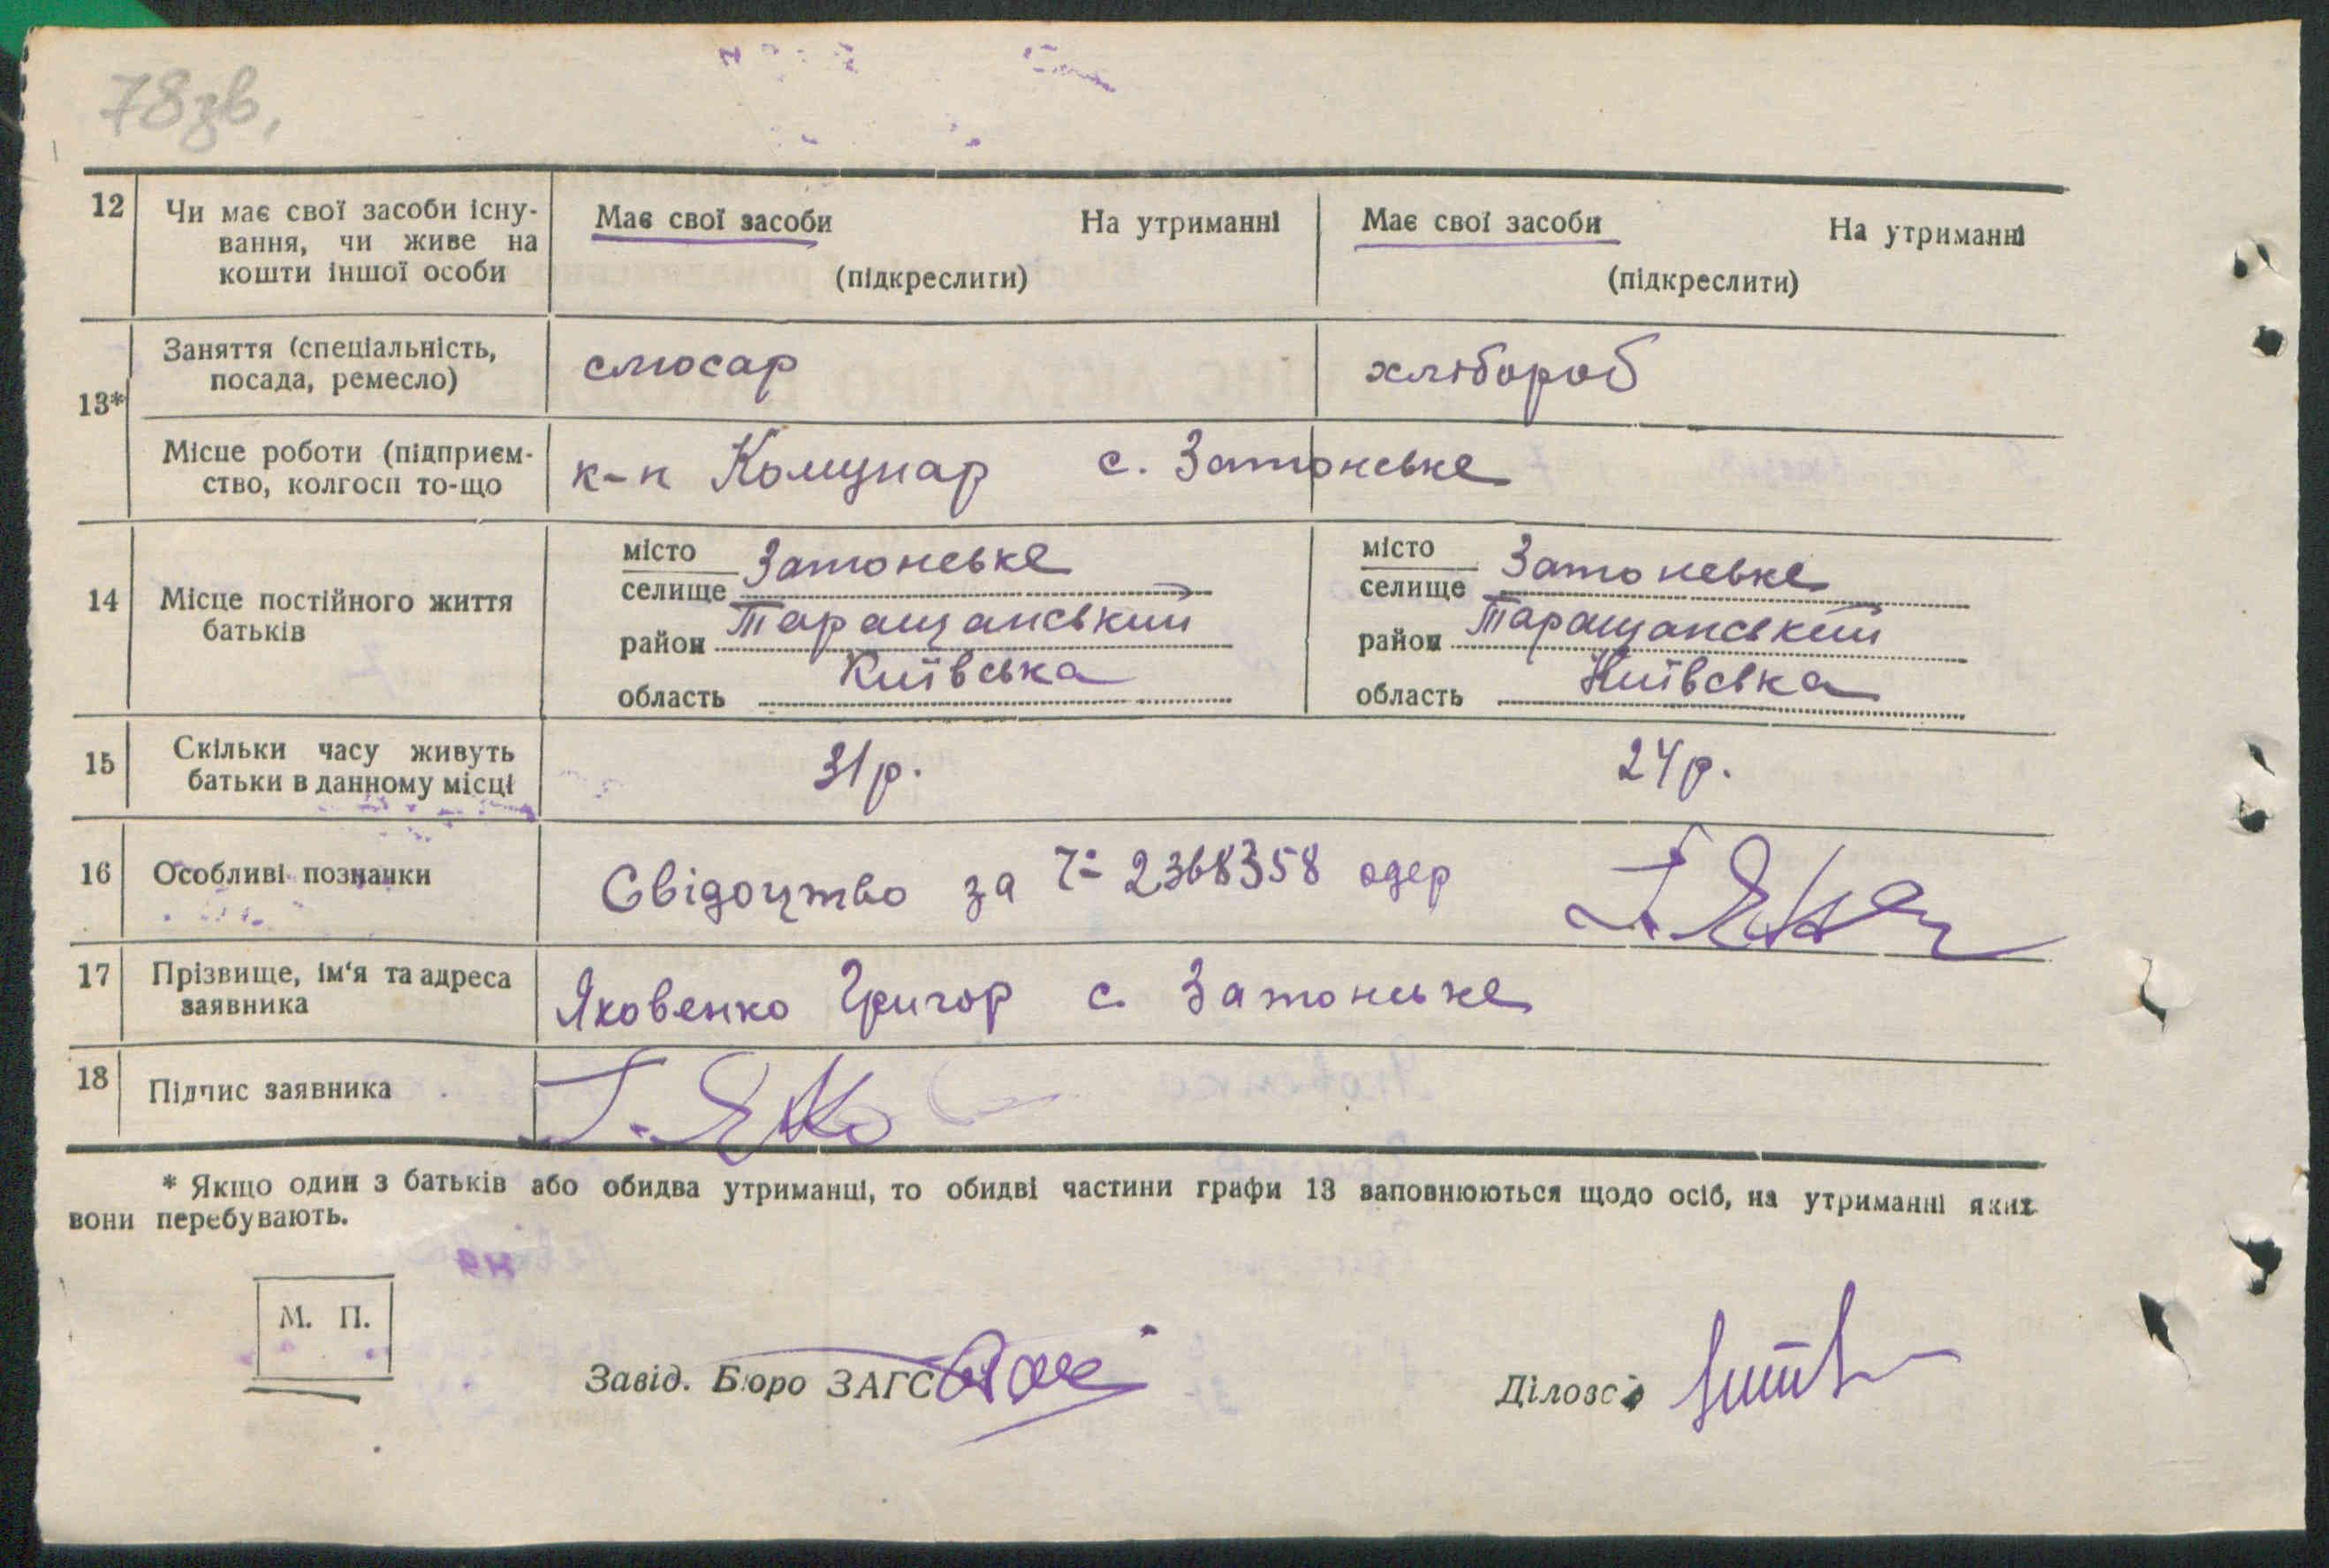 78зв,
12 Чи має свої засоби існу-
вання, чи живе на
кошти іншої особи
Має свої засоби На утриманні
(підкреслити)
Має свої засоби На утриманні
(підкреслити)
13*
Заняття (спеціальність,
посада, ремесло)
слюсар
хлібороб
Місце роботи (підприєм-
ство, колгосп то-що
к-п Комунар с. Затонське
14 Місце постійного життя
батьків
місто
селище Затонське
район Таращанський
область Київська
місто
селище Затонське
район Таращанський
область Київська
15 Скільки часу живуть
батьки в данному місці
31р.
24р.
16 Особливі познаки
Свідоцтво за 2368358 одер
17 Прізвище, ім‘я та адреса
заявника
Яковенко Григор с. Затонське
18 Підпис заявника
* Якщо один з батьків або обидва утриманці, то обидві частини графи 13 заповнюються щодо осіб, на утриманні яких
вони перебувають.
М. П.
Завід. Бюро ЗАГС
Діловод